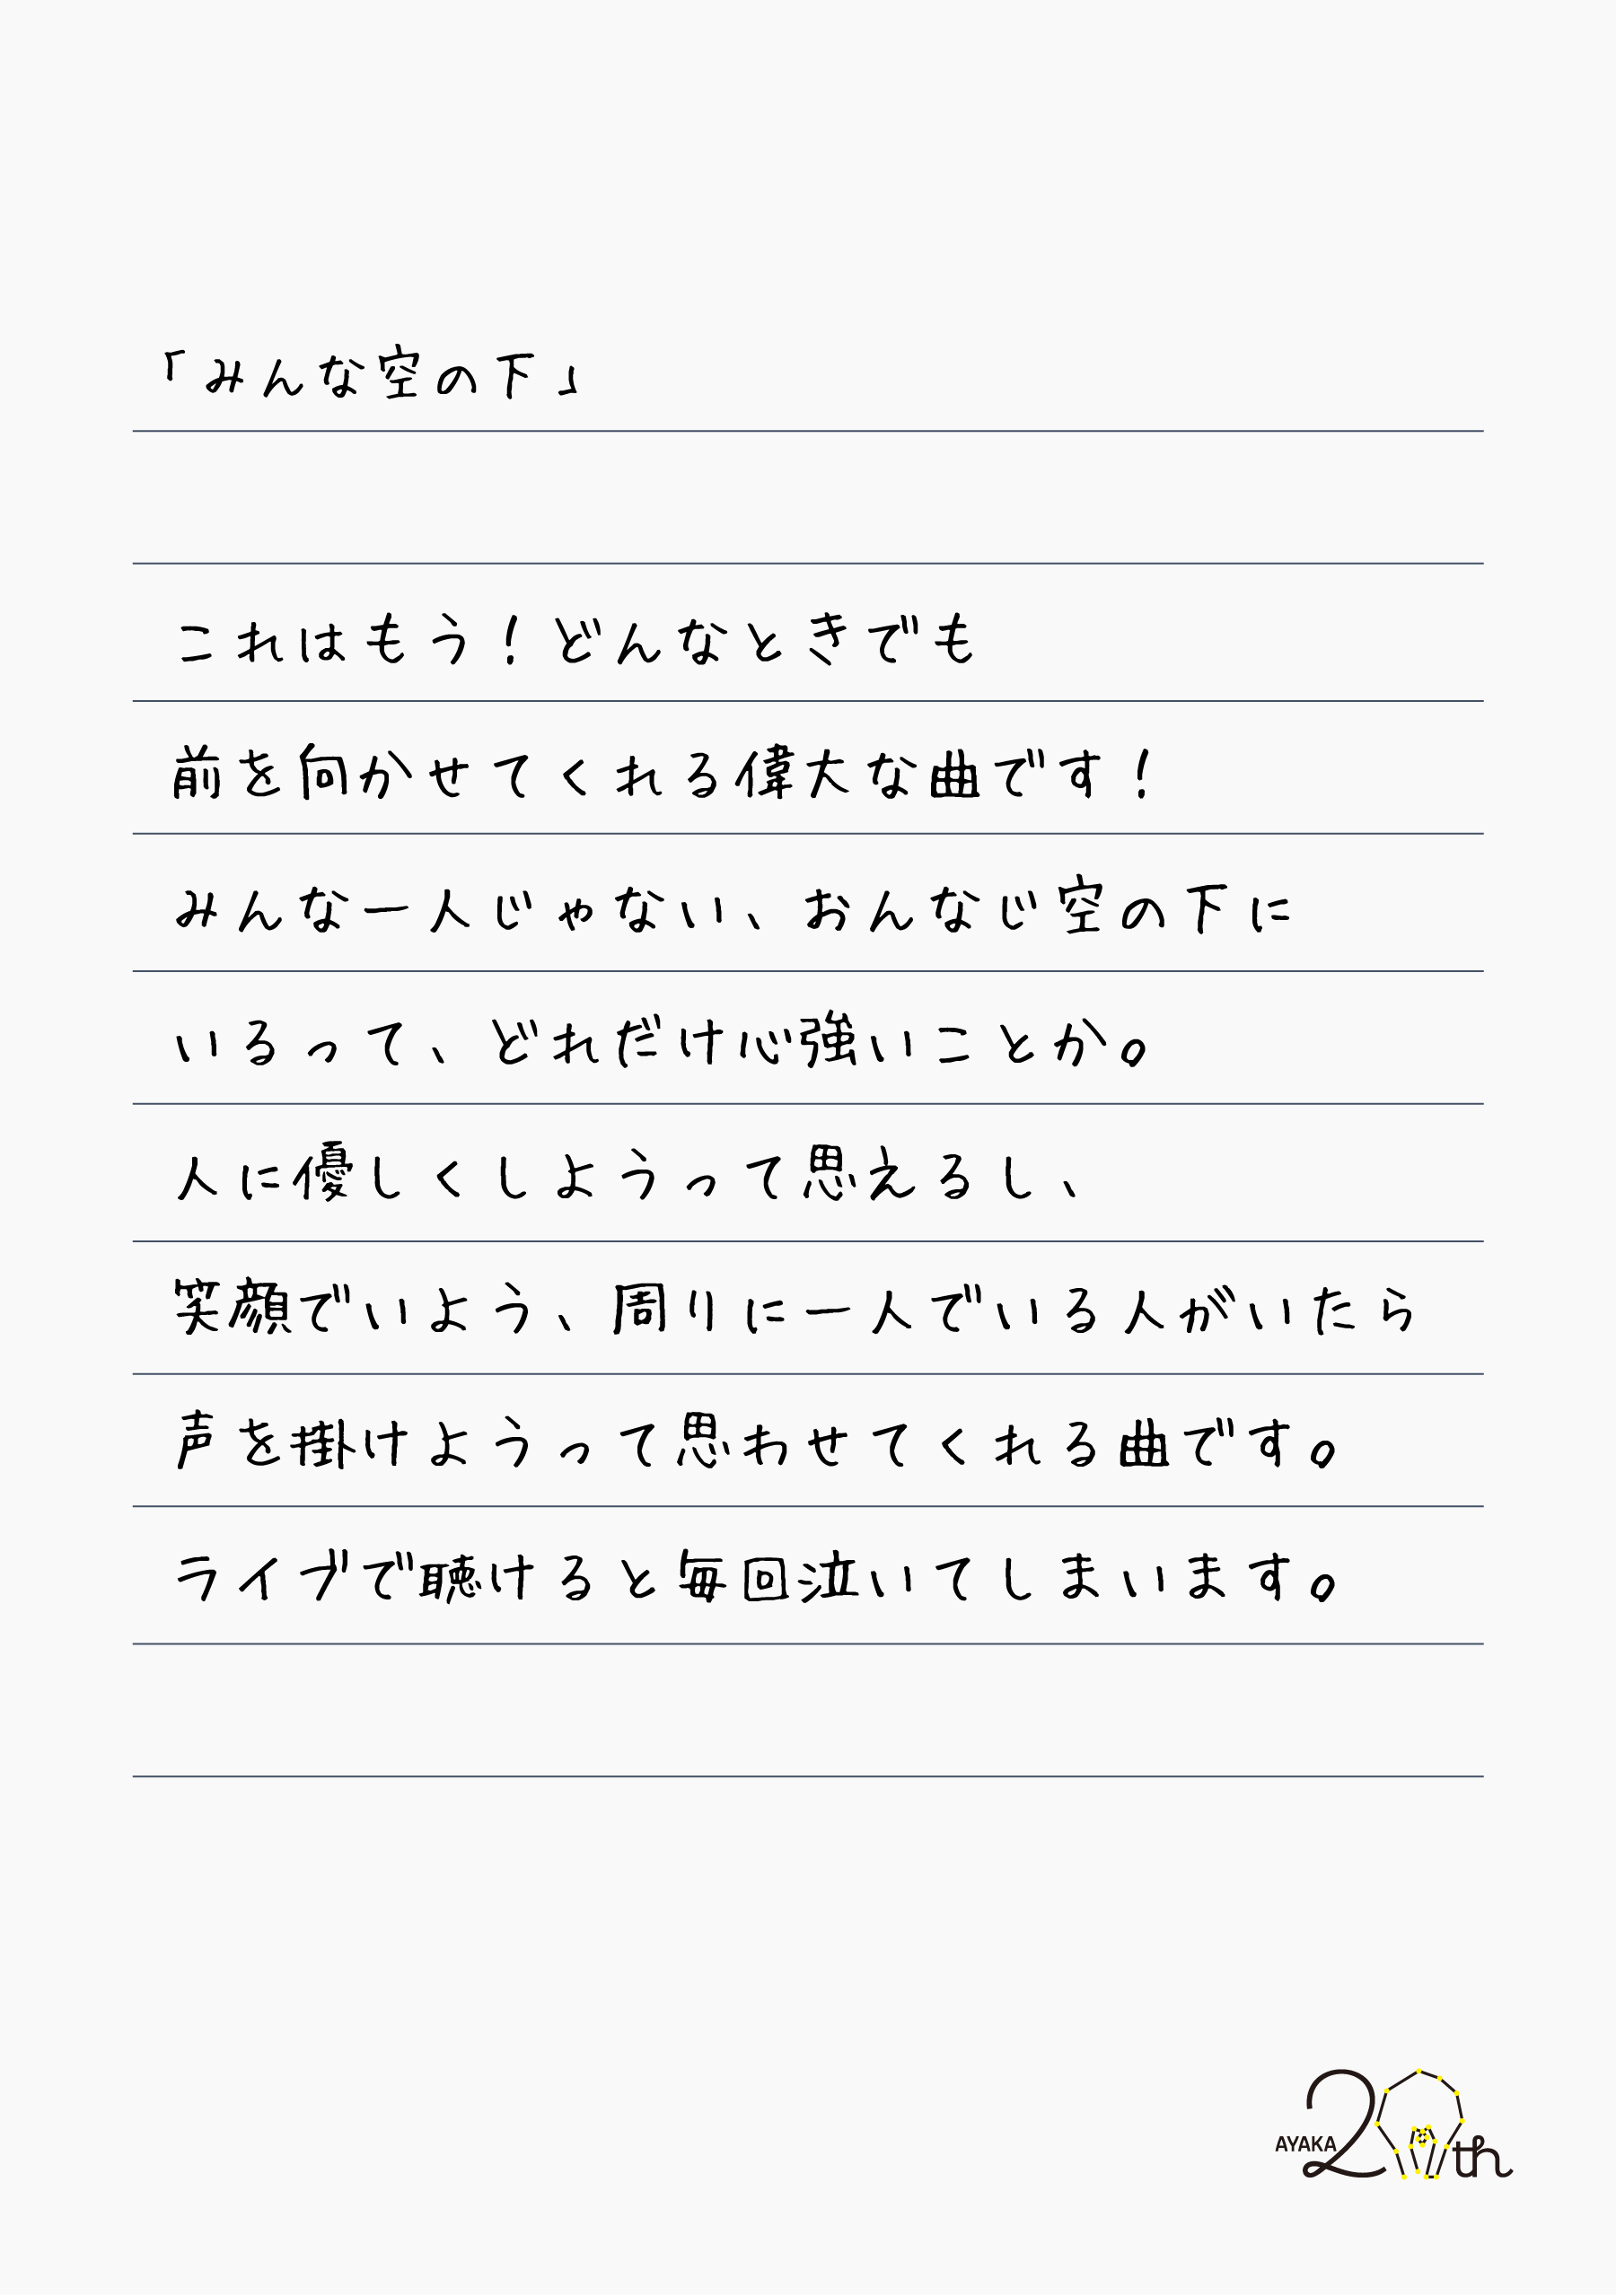 「みんな空の下」
これはもう！どんなときでも
前を向かせてくれる偉大な曲です！
みんな一人じゃない、おんなじ空の下に
いるって、どれだけ心強いことか。
人に優しくしようって思えるし、
笑顔でいよう、周りに一人でいる人がいたら
声を掛けようって思わせてくれる曲です。
ライブで聴けると毎回泣いてしまいます。
AYAKA 20th